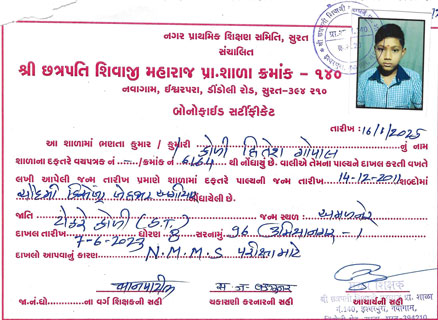 નગર પ્રાથમિક શિક્ષણ સમિતિ, સુરત
સંચાલિત
શ્રી છત્રપતિ શિવાજી મહારાજ પ્રા.શાળા ક્રમાંક - ૧૪૦
નવાગામ, ઈશ્વરપરા, ડીંડોલી રોડ, સુરત-૩૯૪ ૨૧૦
બોનોફાઈડ સર્ટીફીકેટ
તારીખ : 16/1/2025
આ શાળામાં ભણતા કુમાર / કુમારી કોળી હિતેશ ગોપાલ નું નામ
શાળાના દફતરે વયપત્રક નં /ક્રમાંક નં. 6164 થી નોંધાયું છે. વાલીએ તેમના પાલ્યને દાખલ કરતી વખતે
લખી આપેલી જન્મ તારીખ પ્રમાણે શાળામાં દફતરે પાલ્યની જન્મ તારીખ 14-12-2011 શબ્દોમાં
ચૌદમી ડિસેમ્બર બે હજાર અગિયાર નોંધાયેલી છે.
જાતિ ટોકરે કોળી (S.T) જન્મ સ્થળ : અમળનેર
દાખલ તારીખ 7-6-2023 ધોરણ 8 સરનામું 96 - 1
દાખલો આપવાનું કારણ N.M.M.S પરીક્ષા માટે
જા.નં.છો ના વર્ગ શિક્ષકની સહી ચકાસણી કરનારની સહી આચાર્યની સહી